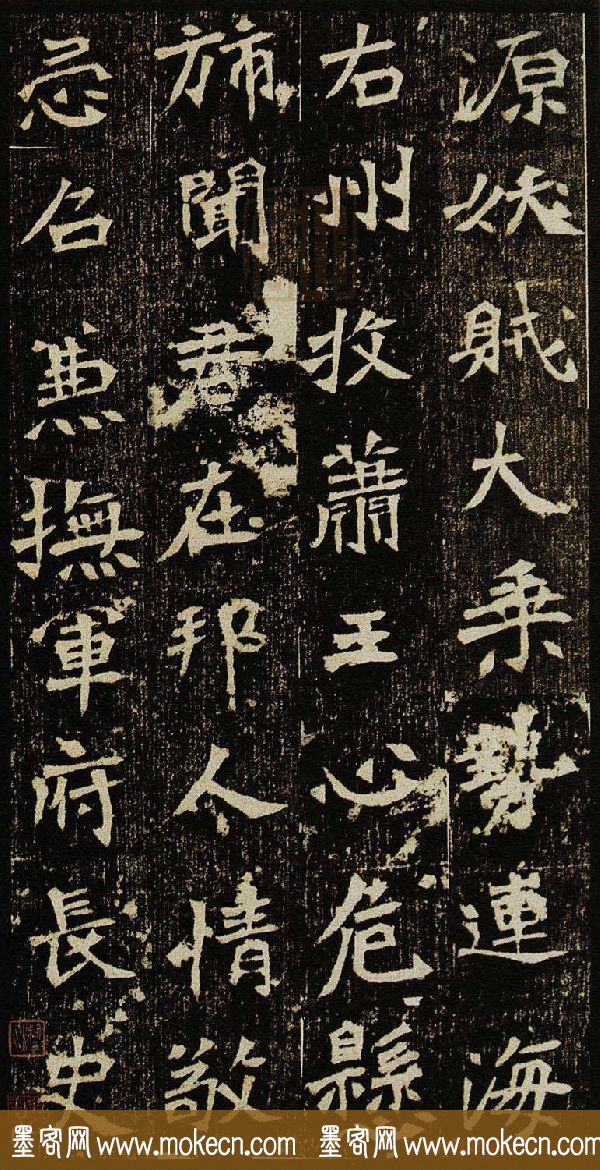 源妖賊大乘勢連海
右州牧蕭王心危懸
旆聞君在邦人情敬
忌召兼撫軍府長史
墨客网 www.mokecn.com 墨客网 www.mokecn.com